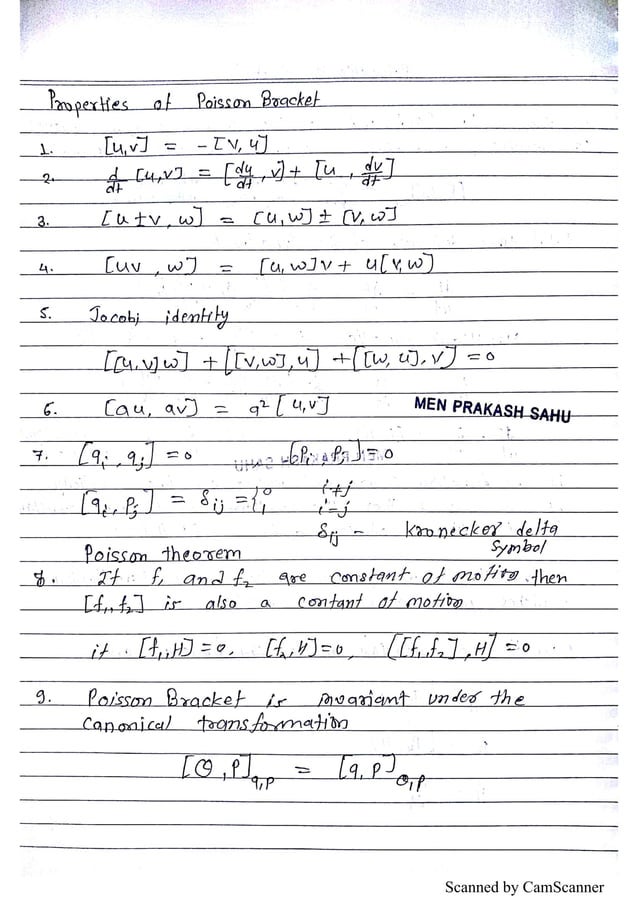 Properties of Poisson Bracket
1. [u,v] = -[v,u]
2. d/dt [u,v] = [du/dt, v] + [u, dv/dt]
3. [u±v, w] = [u,w] ± [v,w]
4. [uv, w] = [u,w]v + u[v,w]
5. Jacobi identity
[[u,v]w] + [[v,w],u] + [[w,u],v] = 0
6. [au, av] = a²[u,v]
MEN PRAKASH SAHU
7. [qi, qj] = 0 [Pi, Pj] = 0
[qi, Pj] = δij = { 0 i≠j
1 i=j
δij - Kronecker delta
Symbol
Poisson theorem
8. If f1 and f2 are constant of motion then
[f1, f2] is also a contant of motion
if [f1,H] = 0, [f2,H] = 0, [[f1,f2],H] = 0
9. Poisson Bracket is invariant under the
canonical transformation
[Q,P]q,p = [q,p]Q,P
Scanned by CamScanner